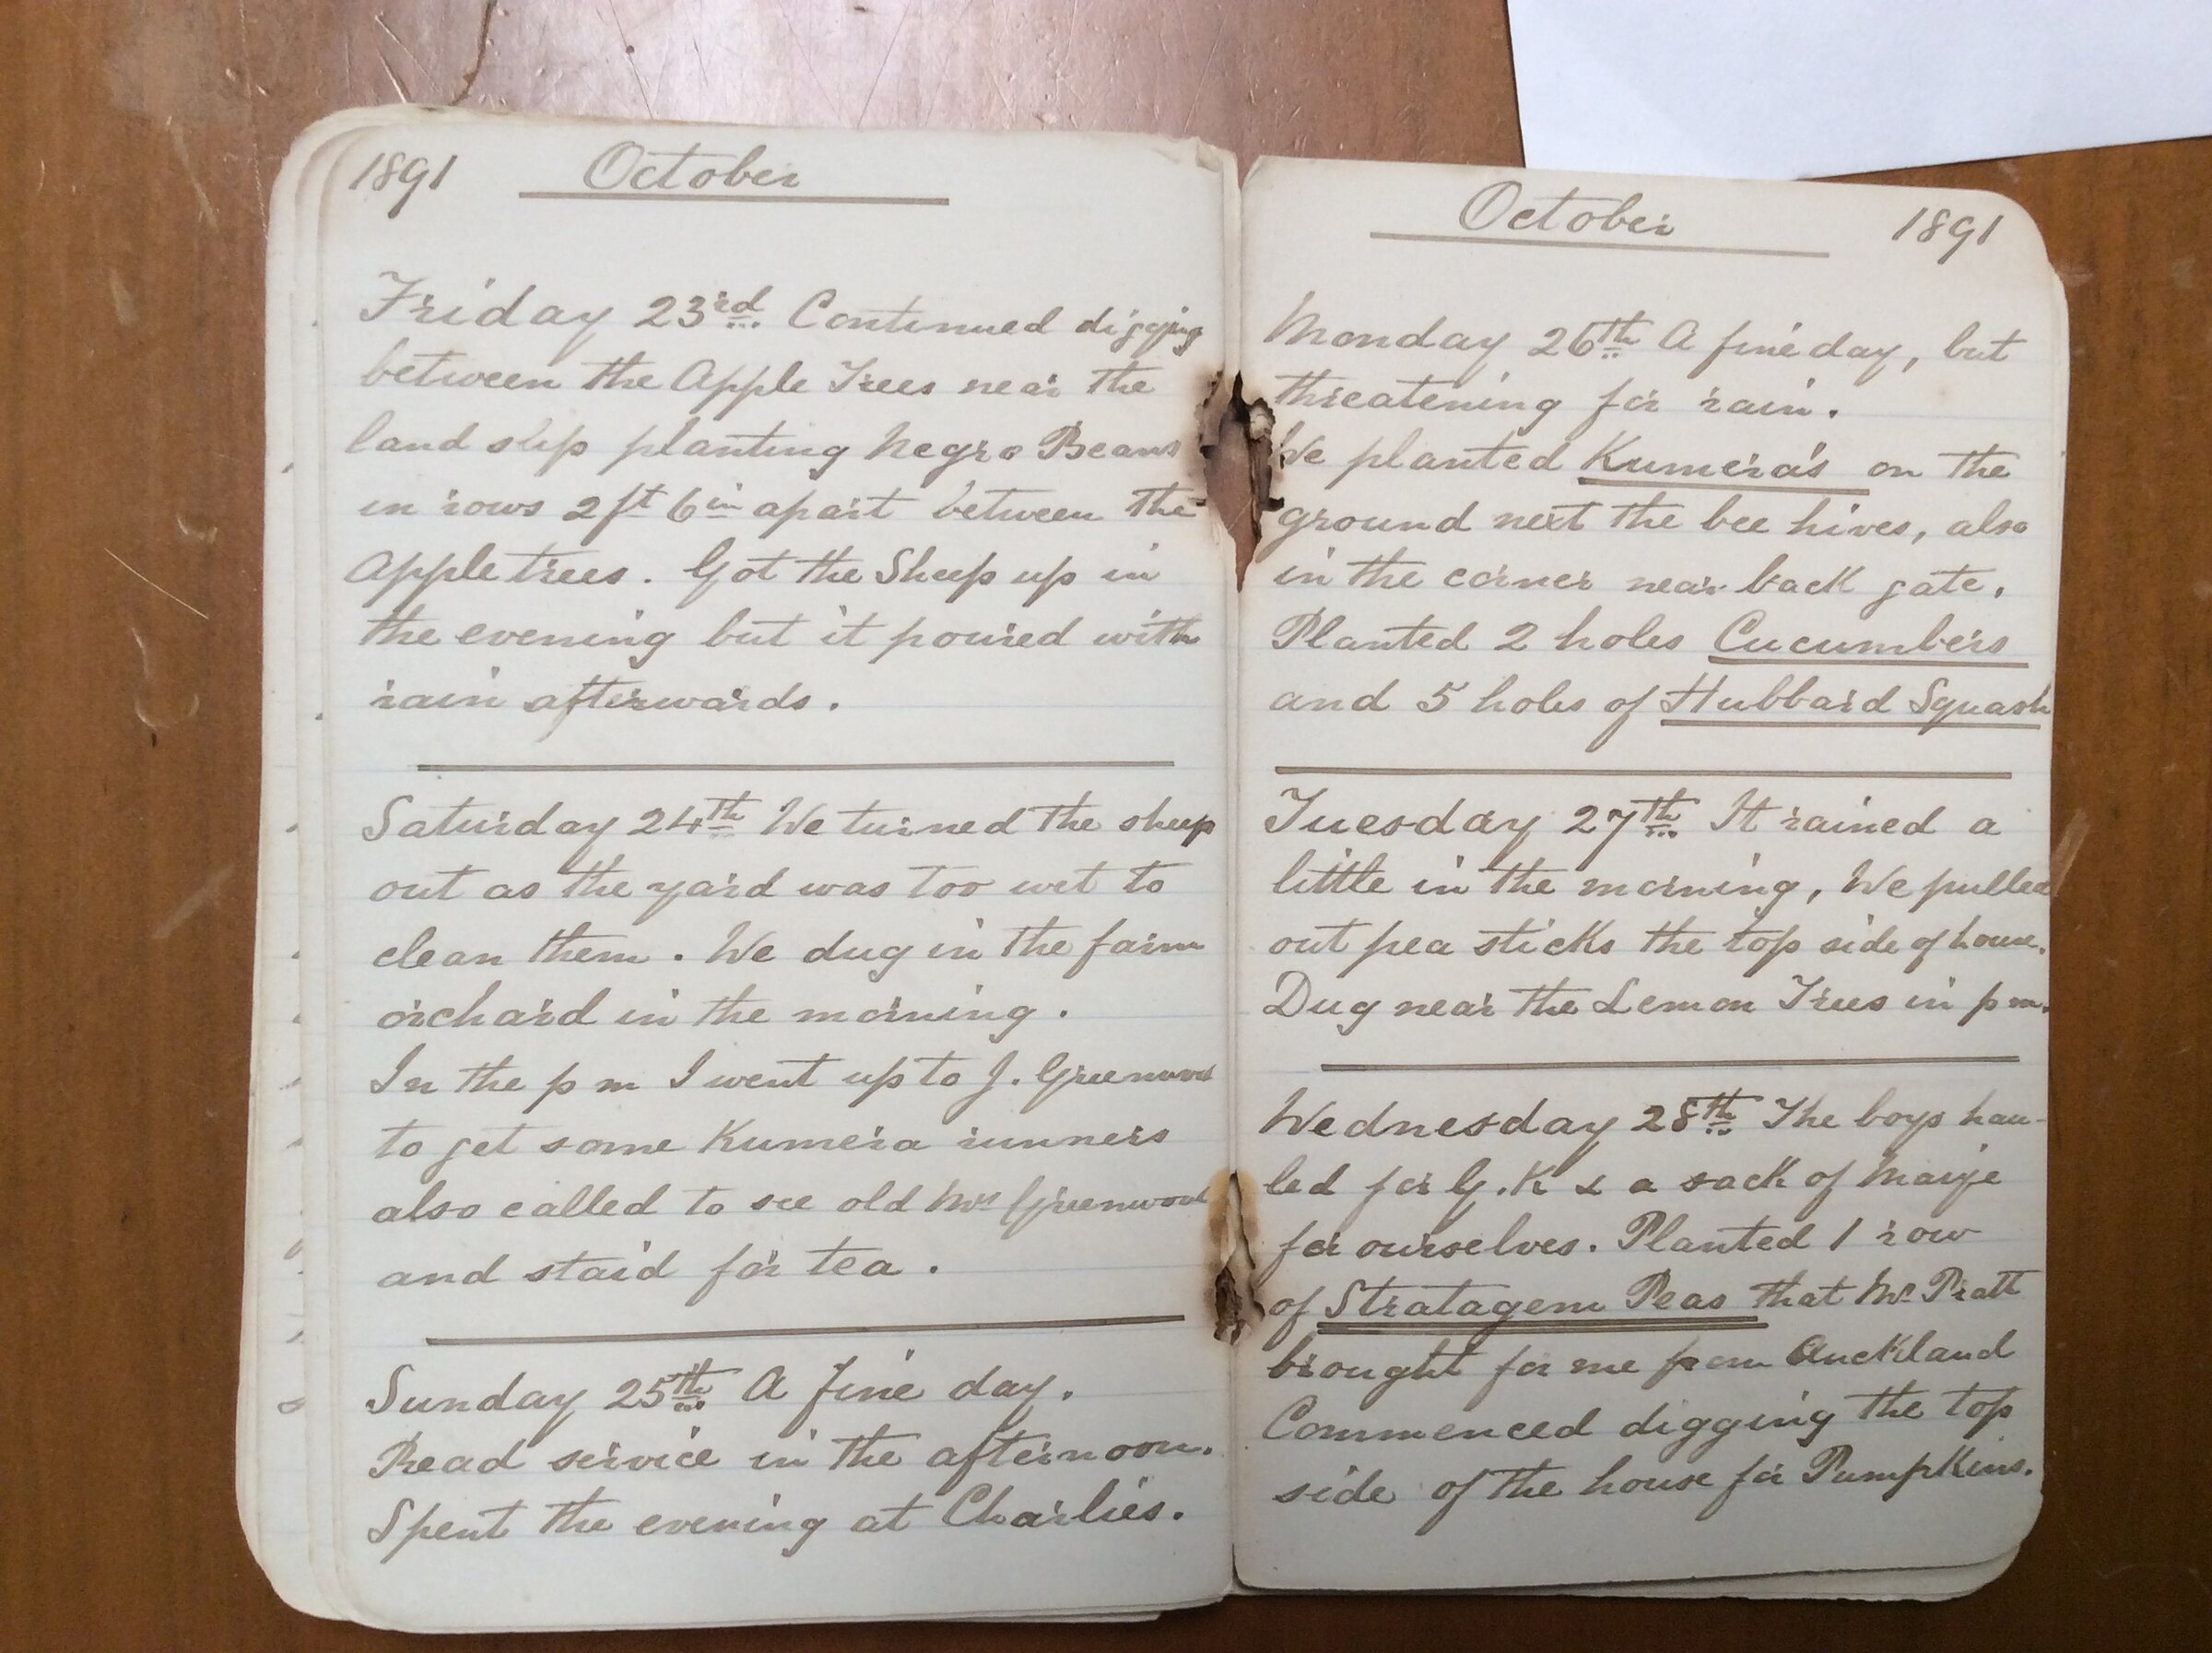 1891 October
Friday 23rd Continued digging
between the Apple Trees near the
land slip planting Negro Beans
in rows 2 ft 6 in apart between the
Apple trees. Got the Sheep up in
the evening but it poured with
rain afterwards.
Saturday 24th We turned the sheep
out as the yard was too wet to
clean them. We dug in the farm
orchard in the morning.
In the p m I went up to J. Greenwood
to get some Kumera runners
also called to see old Mrs Greenwood
and staid for tea.
Sunday 25th A fine day.
Read service in the afternoon.
Spent the evening at Charlies.
October 1891
Monday 26th A fine day, but
threatening for rain.
We planted Kumera's on the
ground next the bee hives, also
in the corner near back gate.
Planted 2 holes Cucumbers
and 5 holes of Hubbard Squash
Tuesday 27th It rained a
little in the morning, We pulled
out pea sticks the top side of house.
Dug near the Lemon Trees in p m.
Wednesday 28th The boys hau-
led for G. K & a sack of Maize
for ourselves. Planted 1 row
of Stratagem Peas that Mr Pratt
brought for me from Auckland
Commenced digging the top
side of the house for Pumpkins.